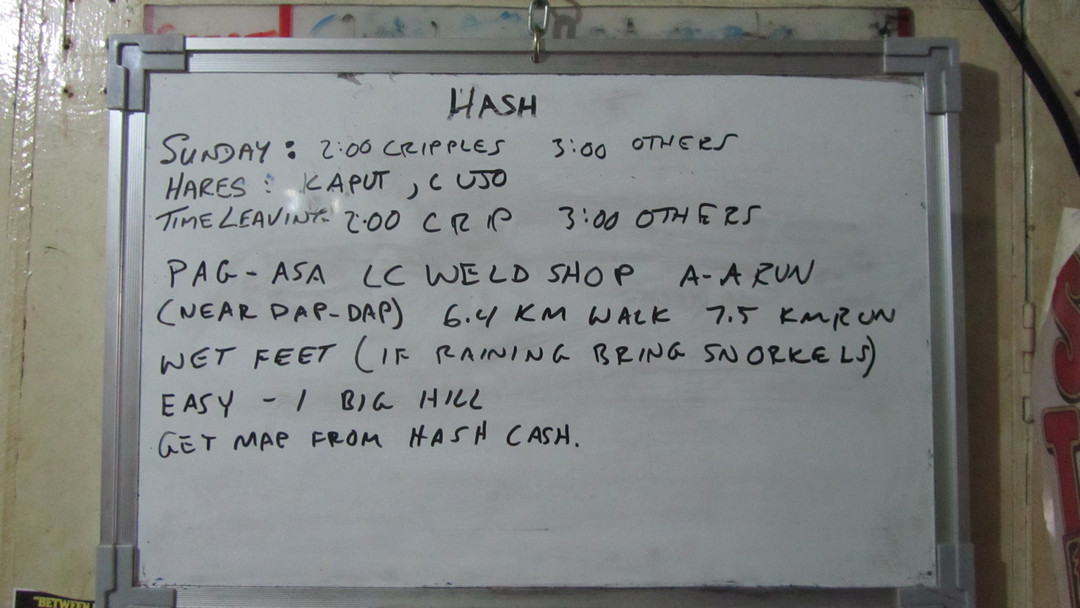 HASH
SUNDAY: 2:00 CRIPPLES 3:00 OTHERS
HARES: KAPUT, CUJO
TIME LEAVING- 2:00 CRIP 3:00 OTHERS
PAG-ASA LC WELD SHOP A-A RUN
(NEAR DAP-DAP) 6.4 KM WALK 7.5 KM RUN
WET FEET (IF RAINING BRING SNORKELS)
EASY - 1 BIG HILL
GET MAP FROM HASH CASH.
BETWEEN